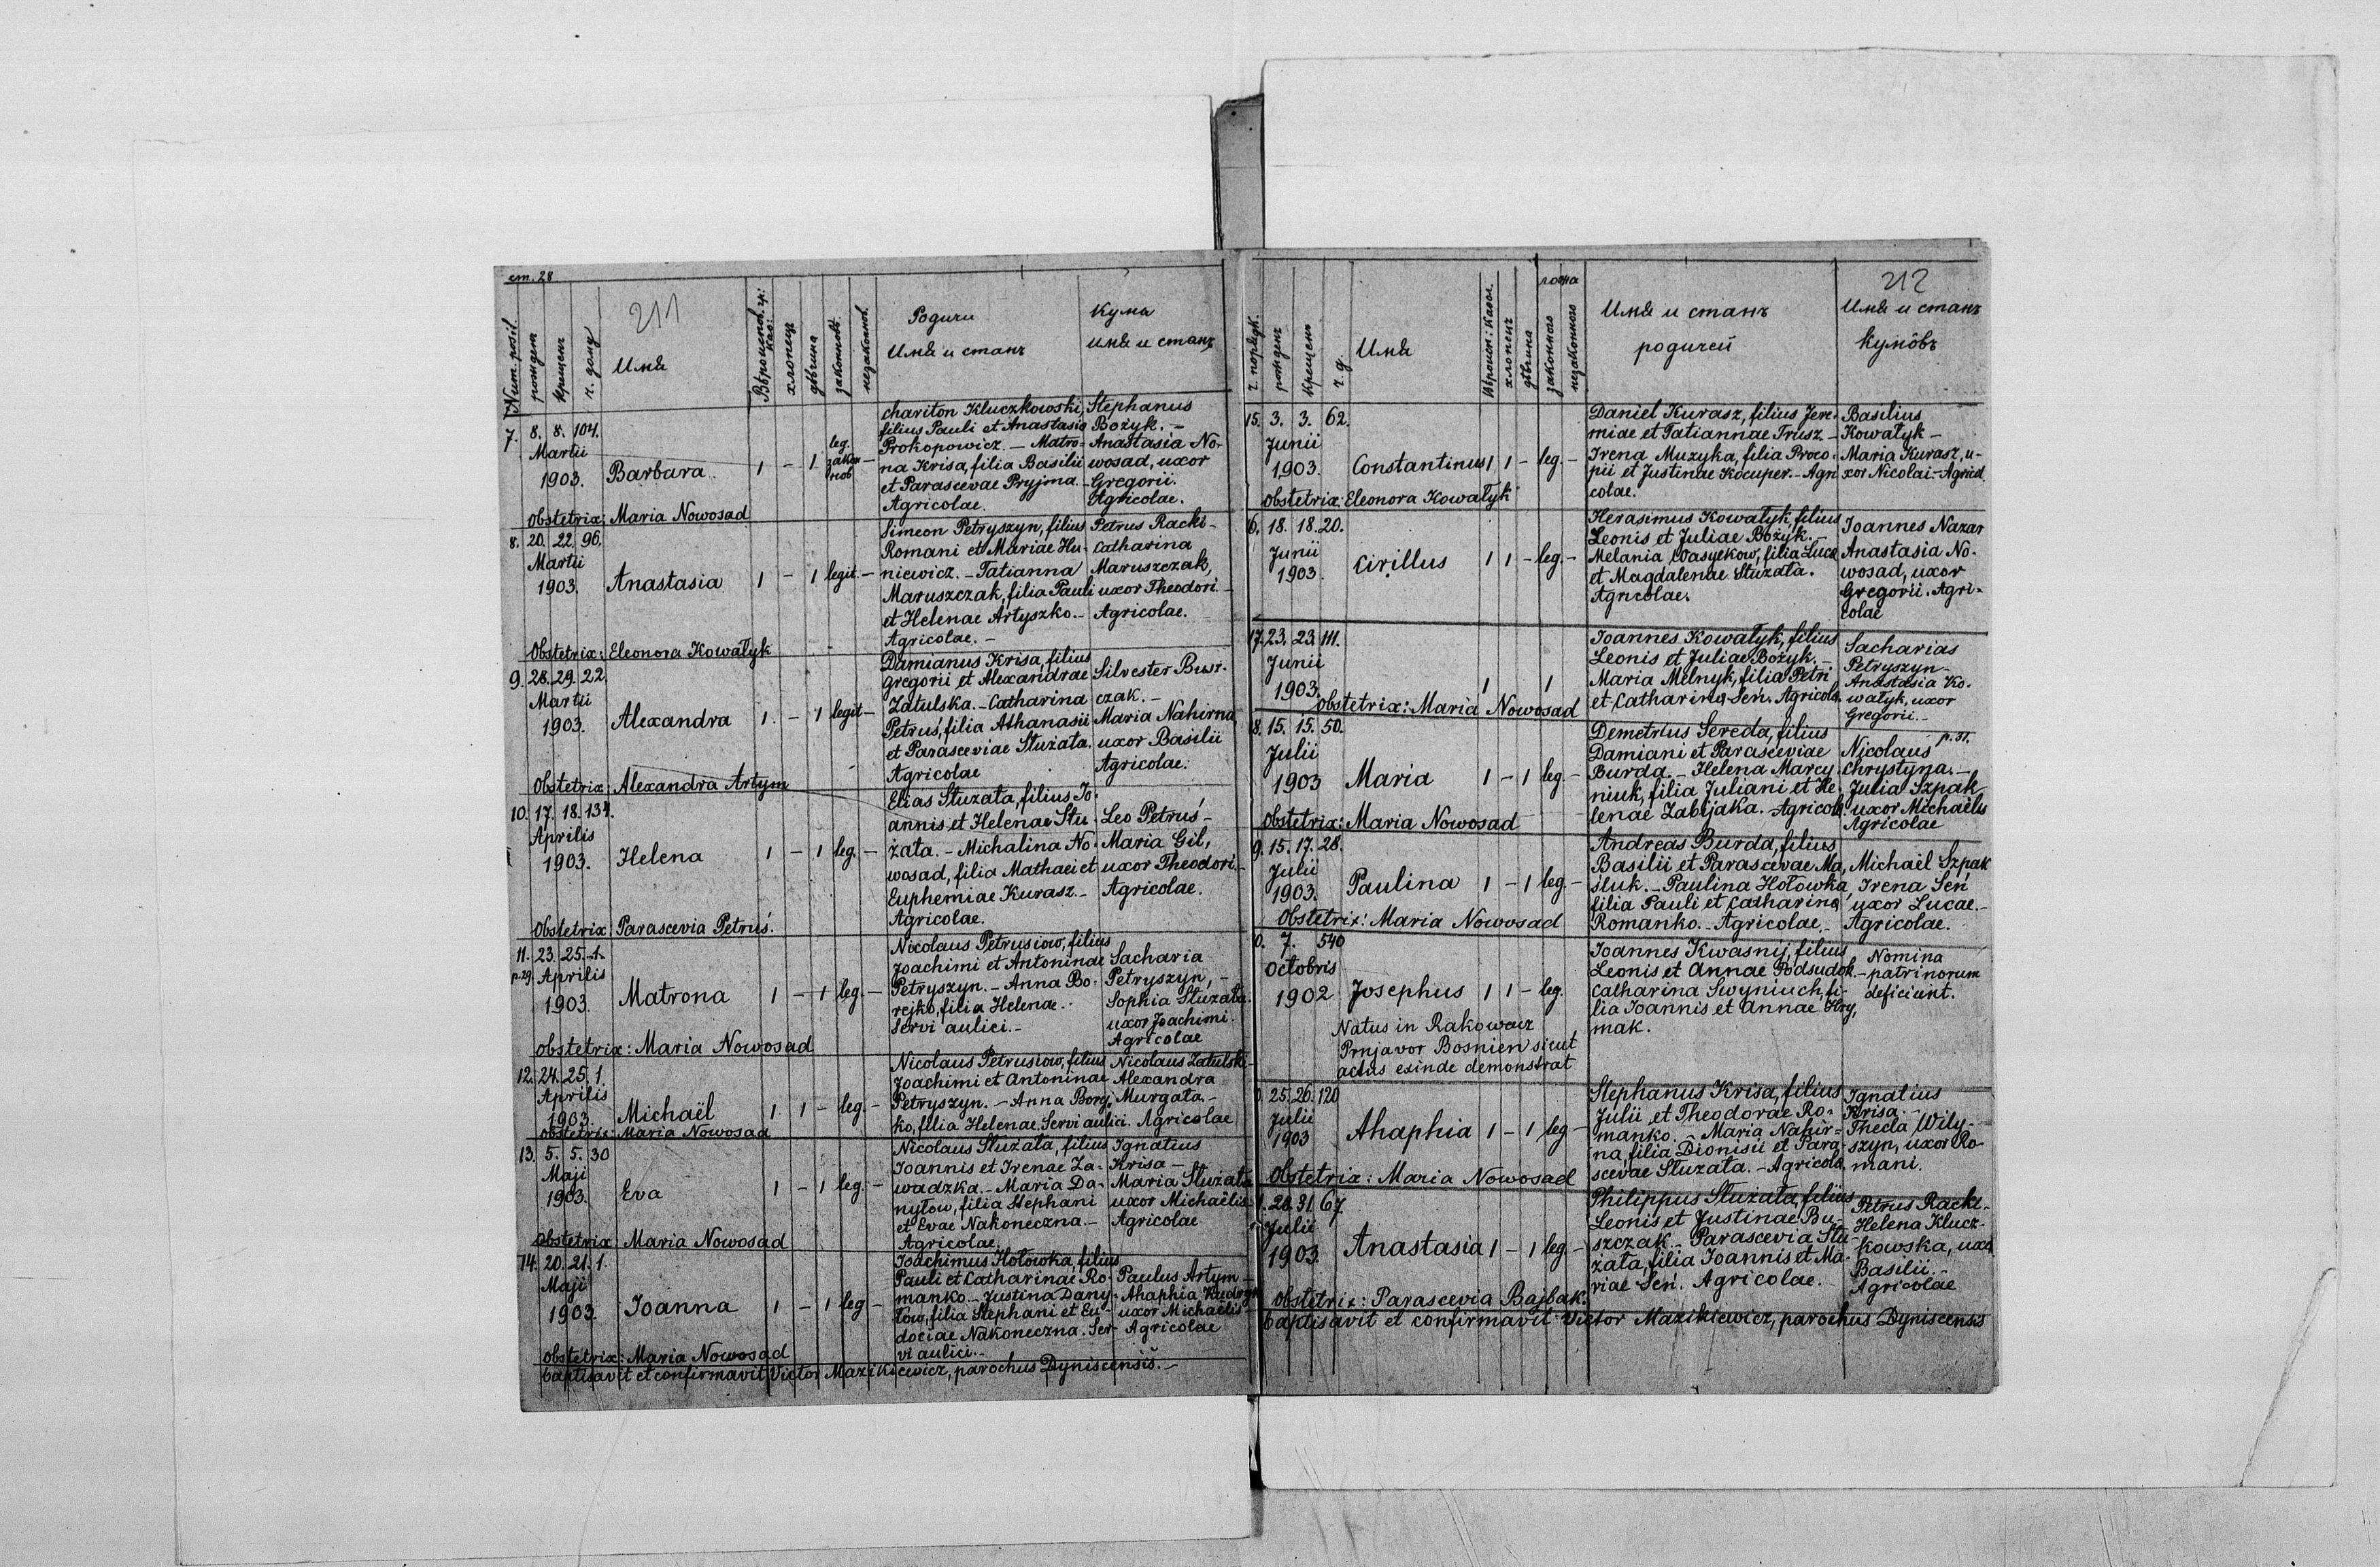 ст. 28
211
Num. posit.
рожден
крищен
ч. дому
Имѧ
хлопец
дѣвчина
законноѣ.
незаконнов.
Родичи
Имѧ и станъ
Кума
Имѧ и станъ
7. 8. 8. 104.
Martii
1903.
Barbara
1 - 1 leg. закон нов -
chariton Kluczkowski,
filius Pauli et Anastasia
Prokopowicz. - Matro=
na Krisa, filia Basilii
et Parascevae Pryjma.
Agricolae.
Stephanus
Bożyk. -
Anastasia No-
wosad, uxor
Gregorii.
Agricolae.
Obstetrix: Maria Nowosad
8. 20. 22. 96.
Martii
1903.
Anastasia
1 - 1 legit. -
Simeon Petryszyn, filius
Romani et Mariae Hu-
niewicz. - Tatianna
Maruszczak, filia Pauli
et Helenae Artyszko. -
Agricolae. -
Petrus Racki -
Catharina
Maruszczak,
uxor Theodori. -
Agricolae.
Obstetrix: Eleonora Kowałyk
9. 28. 29. 22.
Martii
1903.
Alexandra
1. - 1 legit -
Damianus Krisa, filius
Gregorii et Alexandrae
Zatulska. - Catharina
Petruś, filia Athanasii
et Parasceviae Służata.
Agricolae
Silvester Bur-
czak. -
Maria Nahirna
uxor Basilii
Agricolae.
Obstetrix: Alexandra Artym
10. 17. 18. 134.
Aprilis
1903.
Helena
1 - 1 leg. -
Elias Służata, filius Jo-
annis et Helenae Słu-
żata. - Michalina No-
wosad, filia Mathaei et
Euphemiae Kurasz. -
Agricolae.
Leo Petruś -
Maria Gil,
uxor Theodori. -
Agricolae.
Obstetrix: Parascevia Petruś.
11. 23. 25. 1.
p. 29. Aprilis
1903.
Matrona
1 - 1 leg. -
Nicolaus Petrusiow, filius
Joachimi et Antoninae
Petryszyn. - Anna Bo-
rejko, filia Helenae. -
Servi aulici. -
Sacharia
Petryszyn, -
Sophia Służata.
uxor Joachimi.
Agricolae
Obstetrix: Maria Nowosad
12. 24. 25. 1.
Aprilis
1903.
Michaël
1 1 - leg. -
Nicolaus Petrusiow, filius
Joachimi et Antoninae
Petryszyn. - Anna Borej-
ko, filia Helenae. Servi aulici.
Nicolaus Zatulski -
Alexandra
Murgała. -
Agricolae
Obstetrix: Maria Nowosad
13. 5. 5. 30
Maji
1903.
Eva
1 - 1 leg. -
Nicolaus Służata, filius
Joannis et Irenae Za-
wadzka. - Maria Da-
nyłow, filia Stephani
et Evae Nakoneczna. -
Agricolae.
Ignatius
Krisa -
Maria Służata
uxor Michaëlis
Agricolae
Obstetrix: Maria Nowosad
14. 20. 21. 1.
Maji
1903.
Joanna
1 - 1 leg -
Joachimus Hołowka, filius
Pauli et Catharinae Ro-
manko. - Justina Dany-
łow, filia Stephani et Eu-
dociae Nakoneczna. Ser-
vi aulici. -
Paulus Artym -
Ahaphia
uxor Michaëlis
Agricolae
Obstetrix: Maria Nowosad
Baptisavit et confirmavit Victor Mazikiewicz, parochus Dyniscensis. -
212
ч. порядк.
рожден
крищен
ч. д.
Имѧ
хлопец
дѣвчина
ложа
законного
незаконного
Имѧ и станъ
родичей
Имѧ и станъ
кумôвъ
15. 3. 3. 62.
Junii
1903.
Constantinus
1 1 - leg. -
Daniel Kurasz, filius Jere-
miae et Tatiannae Trusz. -
Irena Muzyka, filia Proco-
pii et Justinae Kocuper. - Agri
colae.
Basilius
Kowałyk -
Maria Kurasz, u-
xor Nicolai. - Agricol.
Obstetrix: Eleonora Kowałyk
6. 18. 18. 20.
Junii
1903.
Cirillus
1 1 - leg. -
Herasimus Kowałyk, filius
Leonis et Juliae Bożyk. -
Melania Wasyłkow, filia Lucae
et Magdalenae Służata.
Agricolae.
Joannes Nazar
Anastasia No-
wosad, uxor
Gregorii. Agri-
colae
17. 23. 23. 111.
Junii
1903.
1 1
Joannes Kowałyk, filius
Leonis et Juliae Bożyk. -
Maria Melnyk, filia Petri
et Catharina Seń. Agricolae.
Sacharias
Petryszyn -
Anastasia Ko-
wałyk, uxor
Gregorii. -
Obstetrix: Maria Nowosad
8. 15. 15. 50.
Julii
1903
Maria
1 - 1 leg. -
Demetrius Sereda, filius
Damiani et Parasceviae
Burda. - Helena Marcy-
niuk, filia Juliani et He-
lenae Zabijaka. - Agricolae.
p. 31.
Nicolaus
Chrystyna. -
Julia Szpak
uxor Michaëlis
Agricolae
Obstetrix: Maria Nowosad
9. 15. 17. 28.
Julii
1903.
Paulina
1 - 1 leg. -
Andreas Burda, filius
Basilii et Parascevae Ma-
śluk. - Paulina Hołowka,
filia Pauli et Catharina
Romanko. - Agricolae. -
Michaël Szpak
Irena Seń
uxor Lucae. -
Agricolae.
Obstetrix: Maria Nowosad
0. 7. 540
Octobris
1902
Josephus
1 1 - leg.
Joannes Kwasnij, filius
Leonis et Annae Podsudok. -
Catharina Swyniuch, fi-
lia Joannis et Annae Hry-
mak.
Nomina
patrinorum
deficiunt.
Natus in Rakowac
Prnjavor Bosnien sicut
actus exinde demonstrat
0. 25. 26. 120
Julii
1903
Ahaphia
1 - 1 leg -
Stephanus Krisa, filius
Julii et Theodorae Ro-
manko. - Maria Nahir=
na, filia Dionisii et Para-
scevae Służata. - Agricolae.
Ignatius
Krisa. -
Thecla Wily-
szyn, uxor Ro-
mani.
Obstetrix: Maria Nowosad
1. 28. 31. 67.
Julii
1903.
Anastasia
1 - 1 leg. -
Philippus Służata, filius
Leonis et Justinae Bu-
szczak. - Parascevia Słu-
żata, filia Joannis et Ma-
riae Seń. Agricolae. -
Petrus Racki -
Helena Klucz-
kowska, uxor
Basilii. -
Agricolae
Obstetrix: Parascevia Bajbak.
Baptisavit et confirmavit Victor Mazikiewicz, parochus Dyniscensis